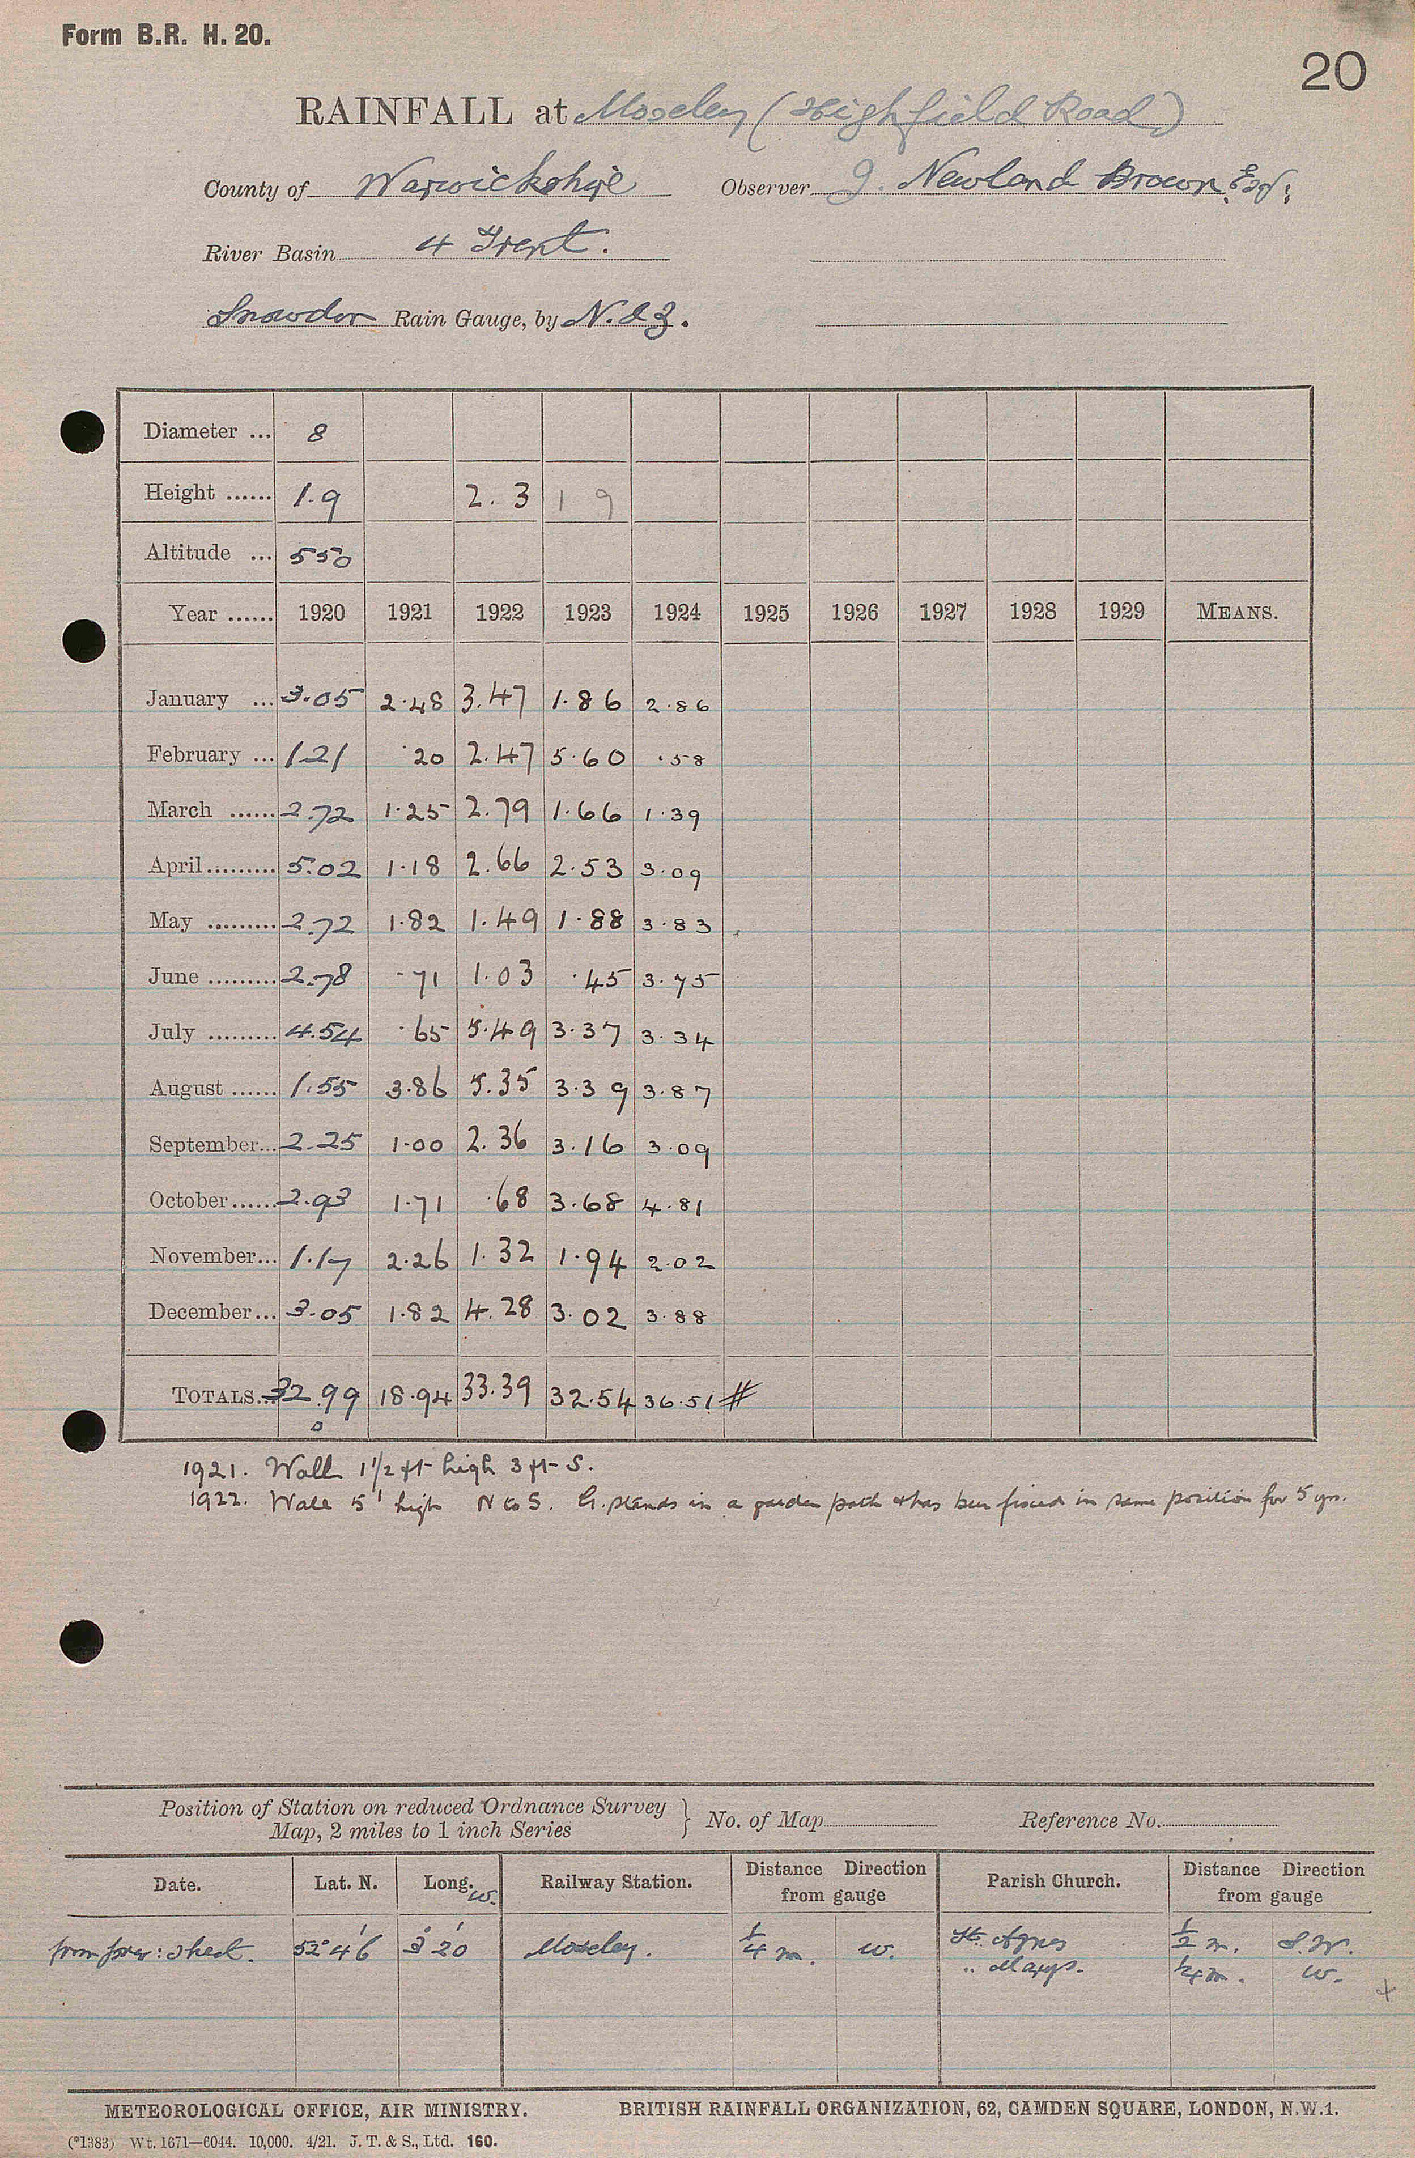 Form B.R. H. 20.
20
RAINFALL at Moseley (Highfield Road)
County of Warwickshire Observer J. Newland Brown, Esq;
River Basin 4 Trent.
Snowdon Rain Gauge, by N. & Z.
Diameter ... 8
Height ...... 1.9 2.3 1 9
Altitude ... 550
Year ...... 1920 1921 1922 1923 1924 1925 1926 1927 1928 1929 MEANS.
January ... 3.05 2.48 3.47 1.86 2.86
February ... 1.21 .20 2.47 5.60 .58
March ...... 2.72 1.25 2.79 1.66 1.39
April......... 5.02 1.18 2.66 2.53 3.09
May ......... 2.72 1.82 1.49 1.88 3.83
June ......... 2.78 .71 1.03 .45 3.75
July ......... 4.54 .65 5.49 3.37 3.34
August ...... 1.55 3.86 5.35 3.39 3.87
September... 2.25 1.00 2.36 3.16 3.09
October...... 2.93 1.71 .68 3.68 4.81
November... 1.17 2.26 1.32 1.94 2.02
December... 3.05 1.82 4.28 3.02 3.88
TOTALS... 32.99 18.94 33.39 32.54 36.51 #
1921. Wall 1½ ft high 3 ft S.
1922. Wall 5' high N to S. G. stands in a garden path & has been fixed in same position for 5 yrs.
Position of Station on reduced Ordnance Survey Map, 2 miles to 1 inch Series } No. of Map Reference No.
Date. Lat. N. Long. W. Railway Station. Distance Direction from gauge Parish Church. Distance Direction from gauge
from prev: sheet. 52° 46' 3° 20' Moseley. ¼ m. W. St. Agnes ½ m. S.W.
" Marys. ¼ m. W.
+
METEOROLOGICAL OFFICE, AIR MINISTRY. BRITISH RAINFALL ORGANIZATION, 62, CAMDEN SQUARE, LONDON, N.W.1.
(*1383) Wt. 1671—6044. 10,000. 4/21. J. T. & S., Ltd. 160.